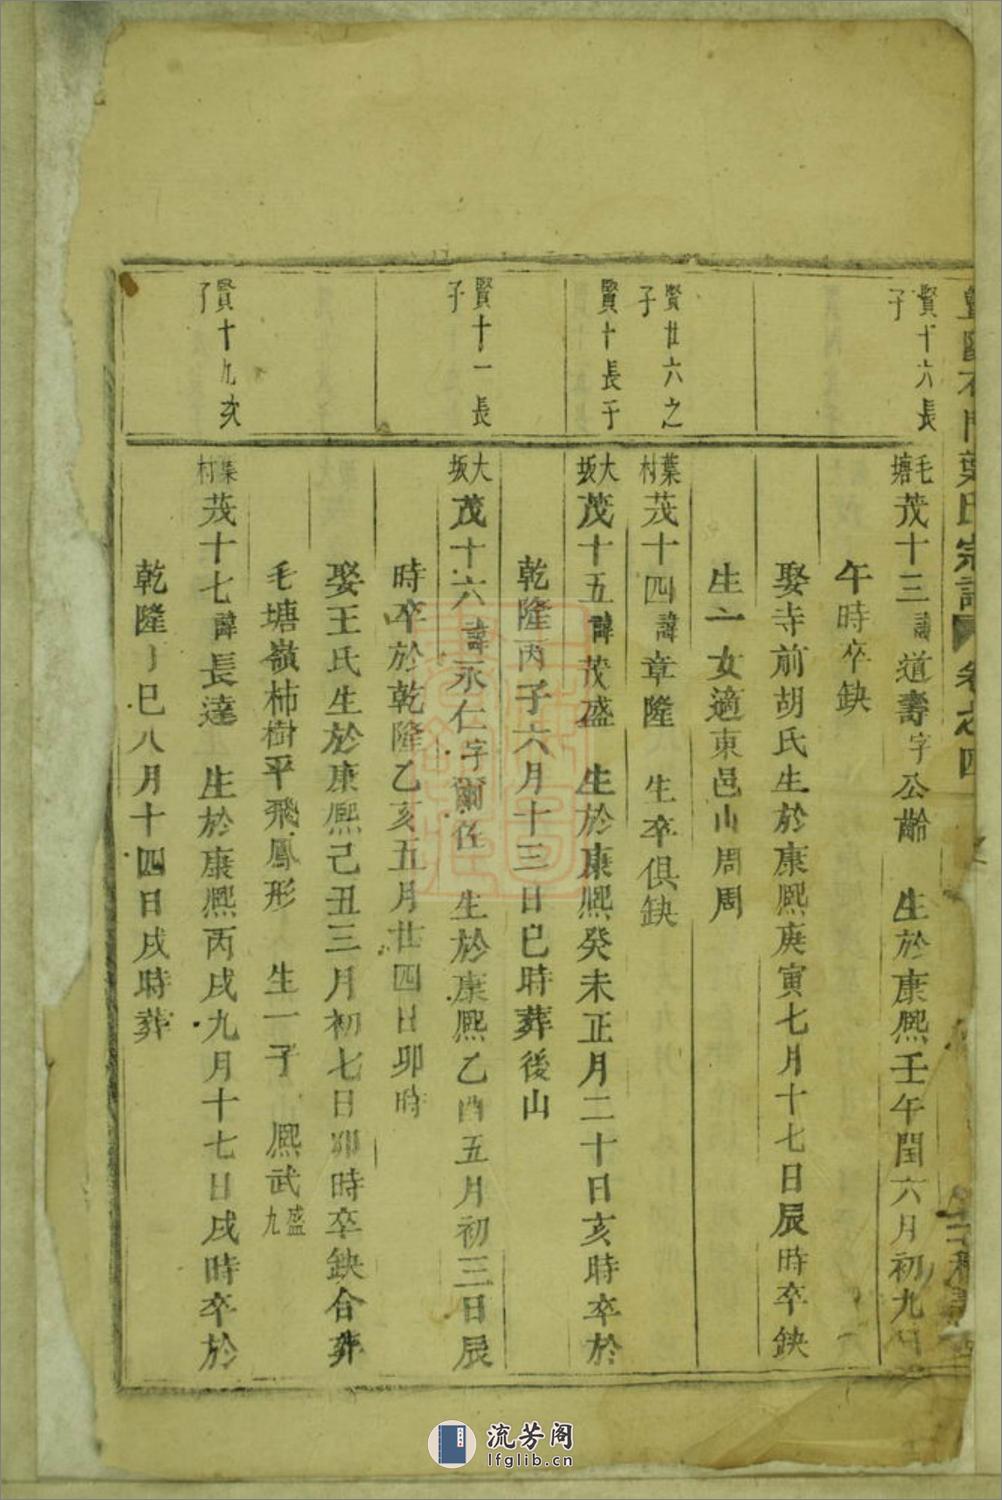 葉氏宗譜 卷之四
賢十六長
子
毛塘茂十三諱道壽字公齡 生於康熙壬午閏六月初九日
午時卒缺
娶寺前胡氏生於康熙庚寅七月十七日辰時卒缺
生一女適東邑山周周
賢廿六之
子
葉村茂十四諱章隆 生卒俱缺
賢十長子
大坂茂十五諱茂盛 生於康熙癸未正月二十日亥時卒於
乾隆丙子六月十三日巳時葬後山
賢十一長
子
大坂茂十六諱永仁字爾佐 生於康熙乙酉五月初三日辰
時卒於乾隆乙亥五月廿四日卯時
娶王氏生於康熙己丑三月初七日卯時卒缺合葬
毛塘嶺柿樹平飛鳳形 生一子 熙武盛九
賢十九次
子
葉村茂十七諱長達 生於康熙丙戌九月十七日戌時卒於
乾隆巳八月十四日戌時葬
流芳阁
lfglib.cn